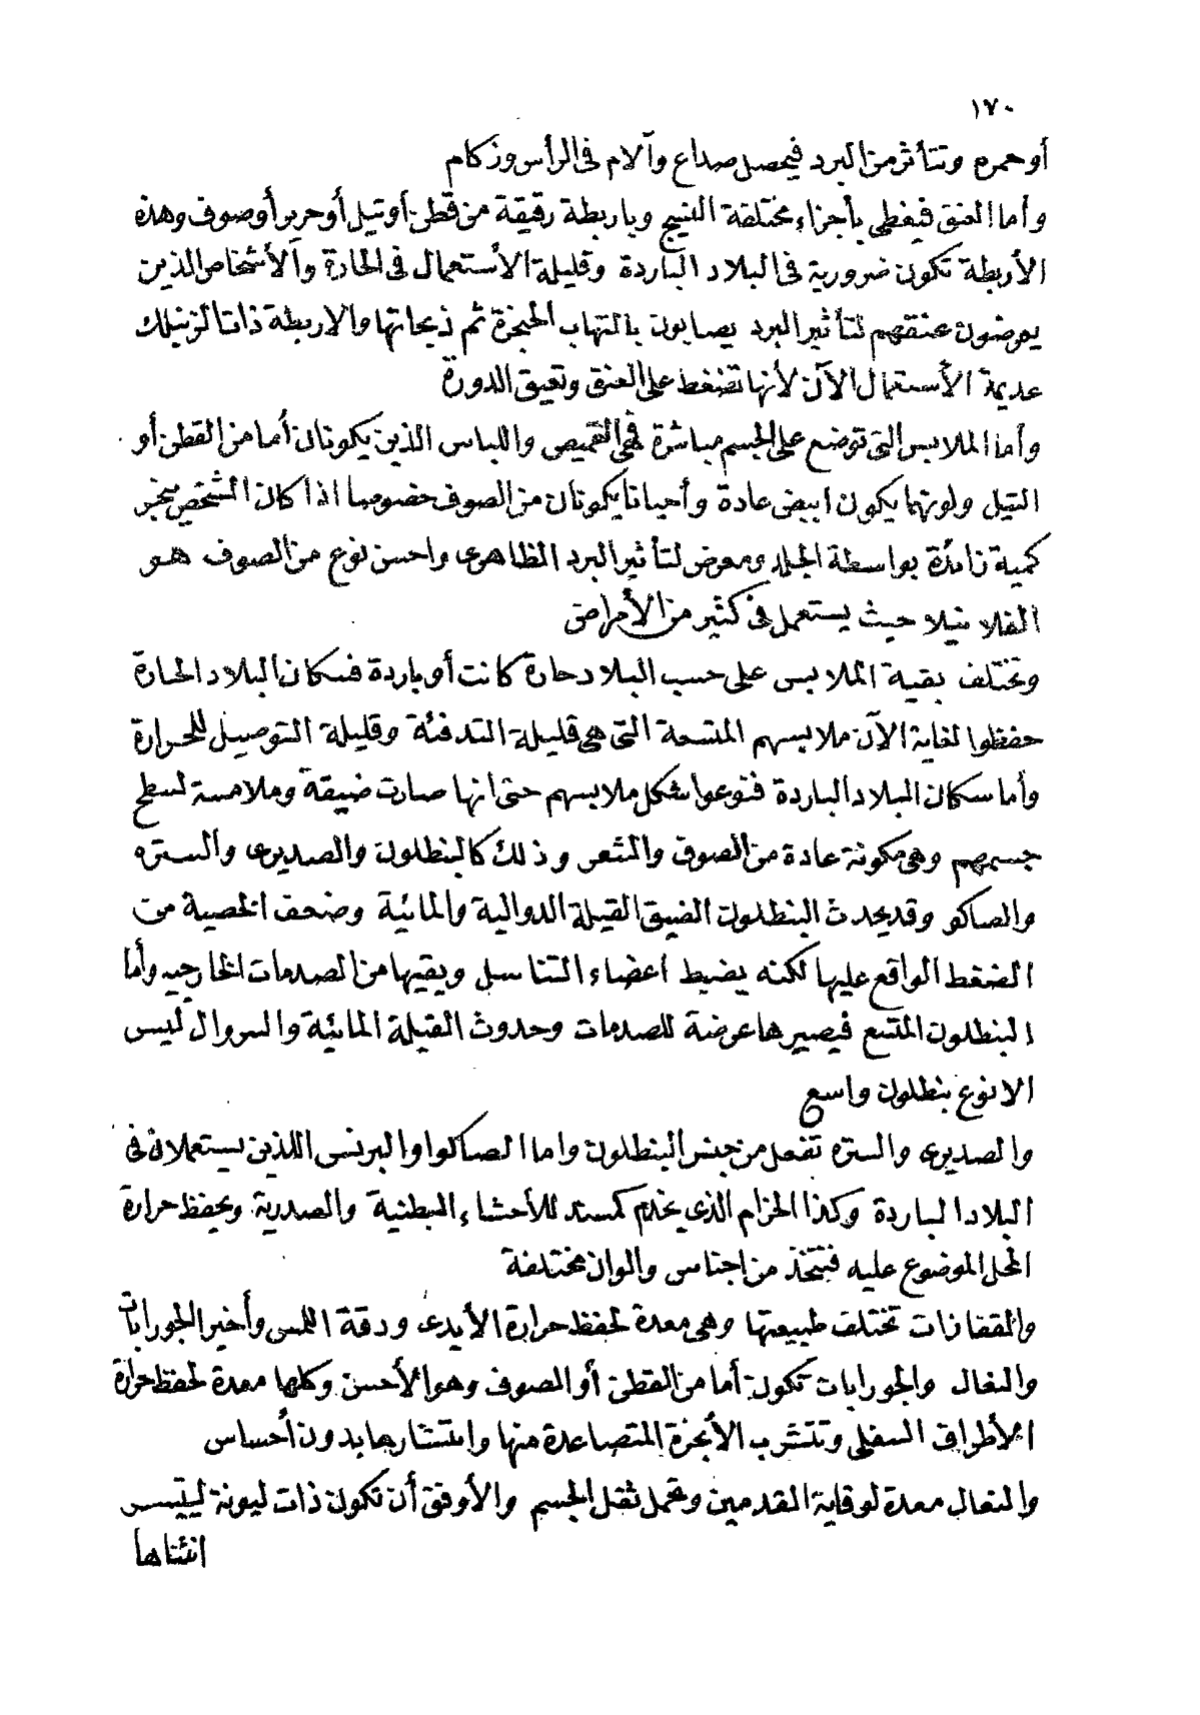 ١٧٠
أو حمره وتتأثر من البرد فيحصل صداع وآلام فى الرأس وزكام
وأما العنق فيغطى بأجزاء مختلفة النسيج وباربطة رقيقة من قطن أوتيل أو حرير أو صوف وهذه
الأربطة تكون ضرورية فى البلاد الباردة وقليلة الأستعمال فى الحارة والأشخاص الذين
يعرضون عنقهم لتأثير البرد يصابون بالتهاب الحنجرة ثم ذبحاتها والاربطة ذات الزنبلك
عديمة الأستعمال الآن لأنها تضغط على العنق وتعيق الدورة
وأما الملابس التى توضع على الجسم مباشرة فهى القميص واللباس الذين يكونان أما من القطن أو
التيل ولونهما يكون ابيض عادة وأحيانا يكونان من الصوف خصوصا اذا كان الشخص يبخر
كمية زائدة بواسطة الجلد ومعرض لتأثير البرد الظاهرى واحسن نوع من الصوف هو
الفلانيلا حيث يستعمل فى كثير من الأمراض
وتختلف بقية الملابس على حسب البلاد حارة كانت أو باردة فسكان البلاد الحارة
حفظوا لغاية الآن ملابسهم المتسعة التى هى قليلة التدفئة وقليلة التوصيل للحرارة
وأما سكان البلاد الباردة فنوعوا شكل ملابسهم حتى انها صارت ضيقة وملامسة لسطح
جسمهم وهى مكونة عادة من الصوف والشعر وذلك كالبنطلون والصديرى والستره
والصاكو وقد يحدث البنطلون الضيق القيلة الدوالية والمائية وضعف الخصية من
الضغط الواقع عليها لكنه يضبط اعضاء التناسل ويقيها من الصدمات الخارجيه وأما
البنطلون المتسع فيصيرها عرضة للصدمات وحدوث القيلة المائية والسروال ليس
الا نوع بنطلون واسع
والصديرى والستره تفعل من جنس البنطلون واما الصاكوا والبرنس اللذين يستعملان فى
البلاد الباردة وكذا الحزام الذى يخدم كمسند للأحشاء البطنية والصدرية ويحفظ حرارة
المحل الموضوع عليه فتتخذ من اجناس والوان مختلفة
والقفازات تختلف طبيعتها وهى معدة لحفظ حرارة الأيدى ودقة اللمس وأخير الجورابات
والنعال والجورابات تكون أما من القطن أو الصوف وهو الأحسن وكلها معدة لحفظ حرارة
الأطراف السفلى وتتشرب الأبخرة المتصاعدة منها وانتشارها بدون أحساس
والنعال معدة لوقاية القدمين وتحمل ثقل الجسم والأوفق أن تكون ذات ليونة ليتيسر
انثناها